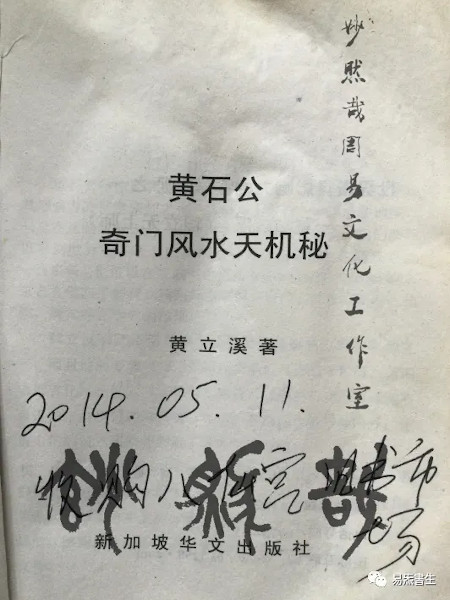 妙然哉周易文化工作室
黄石公
奇门风水天机秘
黄立溪著
2014.05.11.
购八 宫 书市
场
新加坡华文出版社
易炁書生